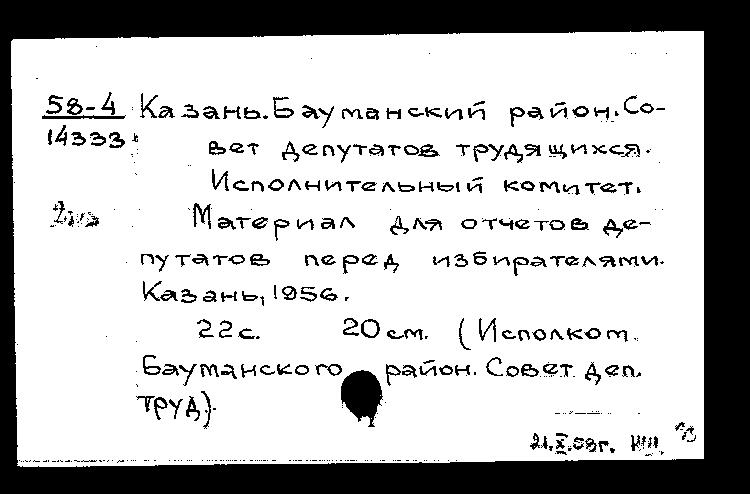 58-4 Казань. Бауманский район. Со-
14333 вет депутатов трудящихся.
Исполнительный комитет.
Материал для отчетов де-
путатов перед избирателями.
Казань, 1956.
22с. 20 см. (Исполком.
Бауманского район. Совет деп.
труд).
21.X.58г.